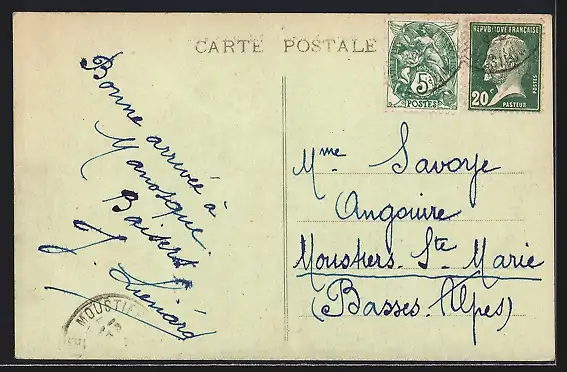 CARTE POSTALE
Bonne arrivée à
Manosque.
Baisers
J. Liénard
MOUSTIE
5c
POSTES
REPUBLIQUE FRANÇAISE
20c
POSTES
PASTEUR
Mme Savoye
Angouire
Moustiers. Ste Marie
(Basses. Alpes)